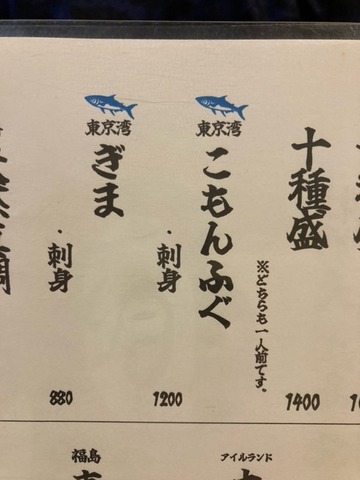 十種盛
※どちらも一人前です。
1400
東京湾
こもんふぐ
・刺身
1200
東京湾
ぎま
・刺身
880
アイルランド
福島